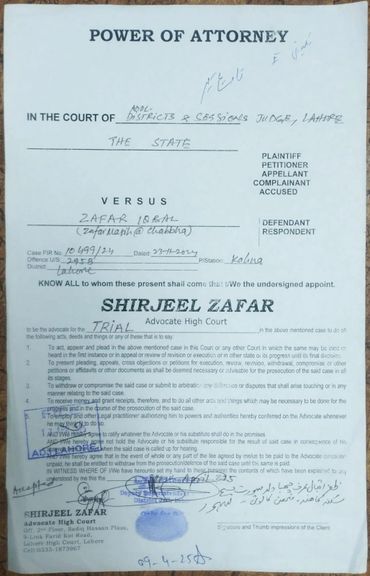 POWER OF ATTORNEY
IN THE COURT OF ADDL- DISTRICTS & SESSIONS JUDGE, LAHORE
THE STATE
PLAINTIFF
PETITIONER
APPELLANT
COMPLAINANT
ACCUSED
VERSUS
ZAFAR IQBAL
DEFENDANT
RESPONDENT
Case FIR No 10499/24 Dated 23-11-2024
Offence U/S P/Station Kahna
District Lahore
KNOW ALL to whom these present shall come that I/We the undersigned appoint.
SHIRJEEL ZAFAR
Advocate High Court
to be the advocate for the TRIAL in the above mentioned case to do all
the following acts, deeds and things or any of these that is to say.
1. To act, appear and plead in the above mentioned case in this Court or any other Court in which the same may be tried or
heard in the first instance or in appeal or review of revision or execution or in other state os its progress until its final decision.
2. To present pleading, appeals, cross objections or petitions for execution, review, revision, withdrawal, compromise or other
petitions or affidavits or other documents as shall be deemed necessary or advisable for the prosecution of the said case in all
its stages.
3. To withdraw or compromise the said case or submit to arbitration any differences or disputes that shall arise touching or in any
manner relating to the said case.
4. To receive money and grant receipts, therefore, and to do all other acts and things which may be necessary to be done for the
progress and in the course of the prosecution of the said case.
5. To employ and other Legal practitioner authorizing him to exercise and authorities hereby conferred on the Advocate whenever
he may think fit to do so.
AND I/We hereby agree to ratify whatever the Advocate or his substitute shall do in the premises
AND I/We hereby agree not hold the Advocate or his substitute responsible for the result of said case in consequence of his
when the said case is called up for hearing.
AND I/We hereby agree that in the event of whole or any part of the fee agreed by me/us to be paid to the Advocate
unpaid, he shall be entitled to withdraw from the prosecution/defence of the said case until the same is paid.
IN WITNESS WHERE OF I/We have hereunto set my hand to these presents the contents of which have been explained to any
understood by me this the April 2025
Accepted
SHIRJEEL ZAFAR
Advocate High Court
Off: 2nd Floor, Sadiq Hassan Plaza,
9-Link Farid Kot Road,
Lahore High Court, Lahore
Cell:0333-1873967
Signature and Thumb impressions of the Client
09-4-25